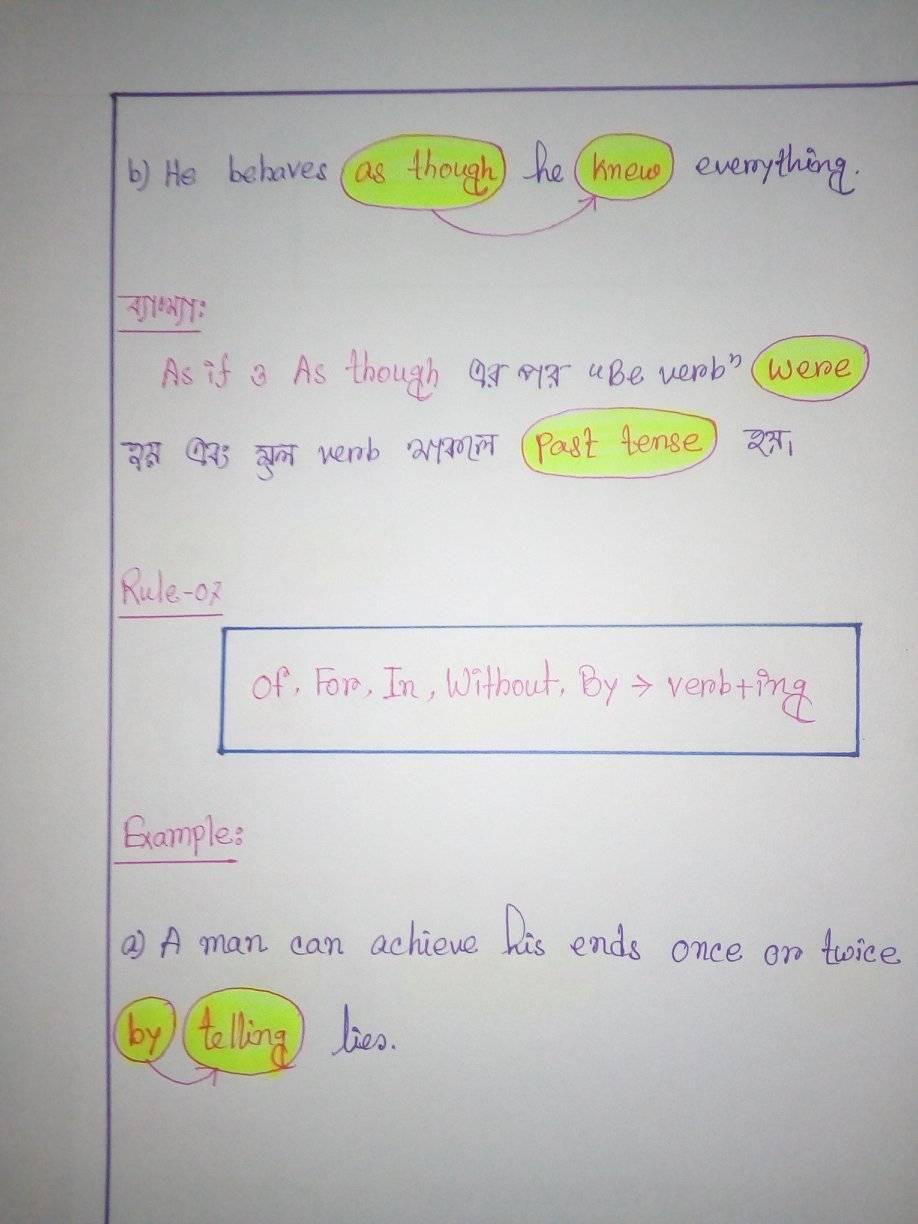 b) He behaves as though he knew everything.
ব্যাখ্যা:
As if ও As though এর পর "Be verb" were
হয় এবং মুল verb থাকলে Past tense হয়।
Rule-07
Of, For, In, Without, By → verb+ing
Example:
a) A man can achieve his ends once or twice
by telling lies.